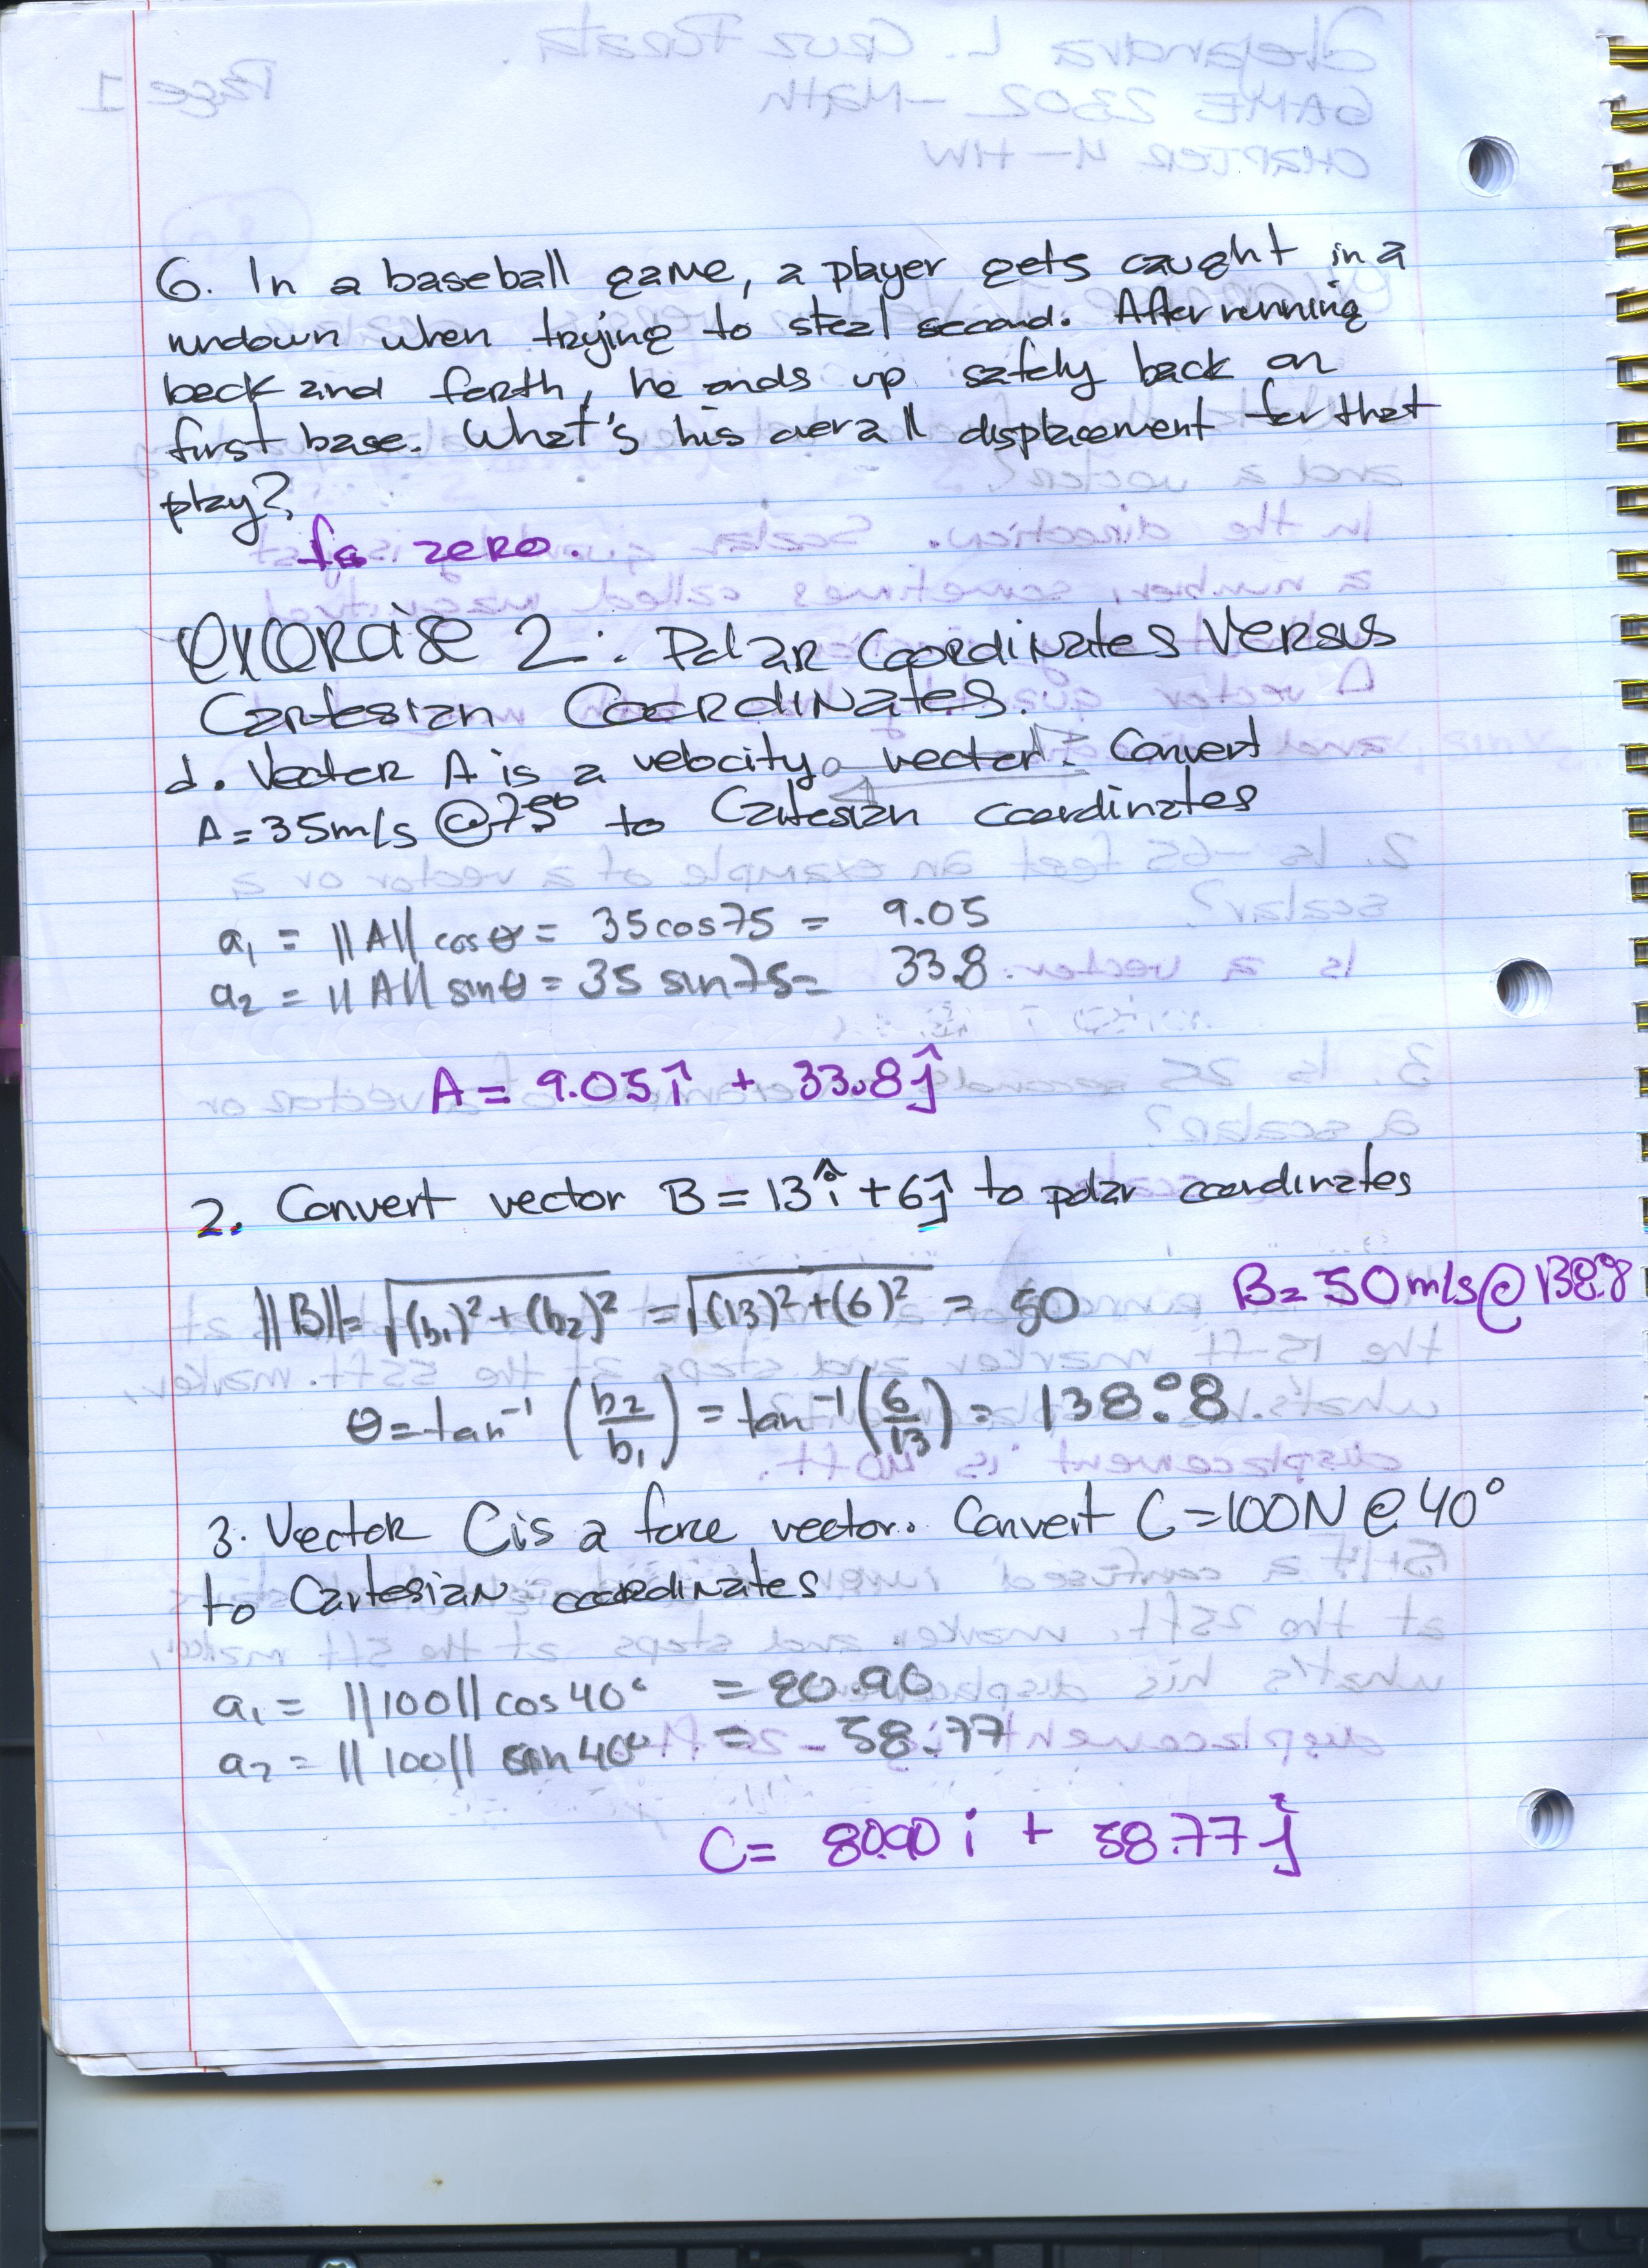 6. In a baseball game, a player gets caught in a
rundown when trying to steal second. After running
back and forth, he ends up safely back on
first base. What's his overall displacement for that
play?
zero.
Exercise 2: Polar Coordinates Versus
Cartesian Coordinates.
d. Vector A is a velocity vector. Convert
A = 35m/s @ 75° to Cartesian coordinates
a₁ = ||A|| cos θ = 35cos75 = 9.05
a₂ = ||A|| sin θ = 35 sin 75 = 33.8
A = 9.05 î + 33.8 ĵ
2. Convert vector B = 13 î + 6 ĵ to polar coordinates
||B|| = √(b₁)² + (b₂)² = √(13)² + (6)² = 50
B = 50 m/s @ 138.8
θ = tan⁻¹ (b₂/b₁) = tan⁻¹ (6/13) = 138°.8
3. Vector C is a force vector. Convert C = 100N @ 40°
to Cartesian coordinates
a₁ = ||100|| cos 40° = 80.90
a₂ = ||100|| sin 40° = 58.77
C = 80.90 i + 58.77 ĵ